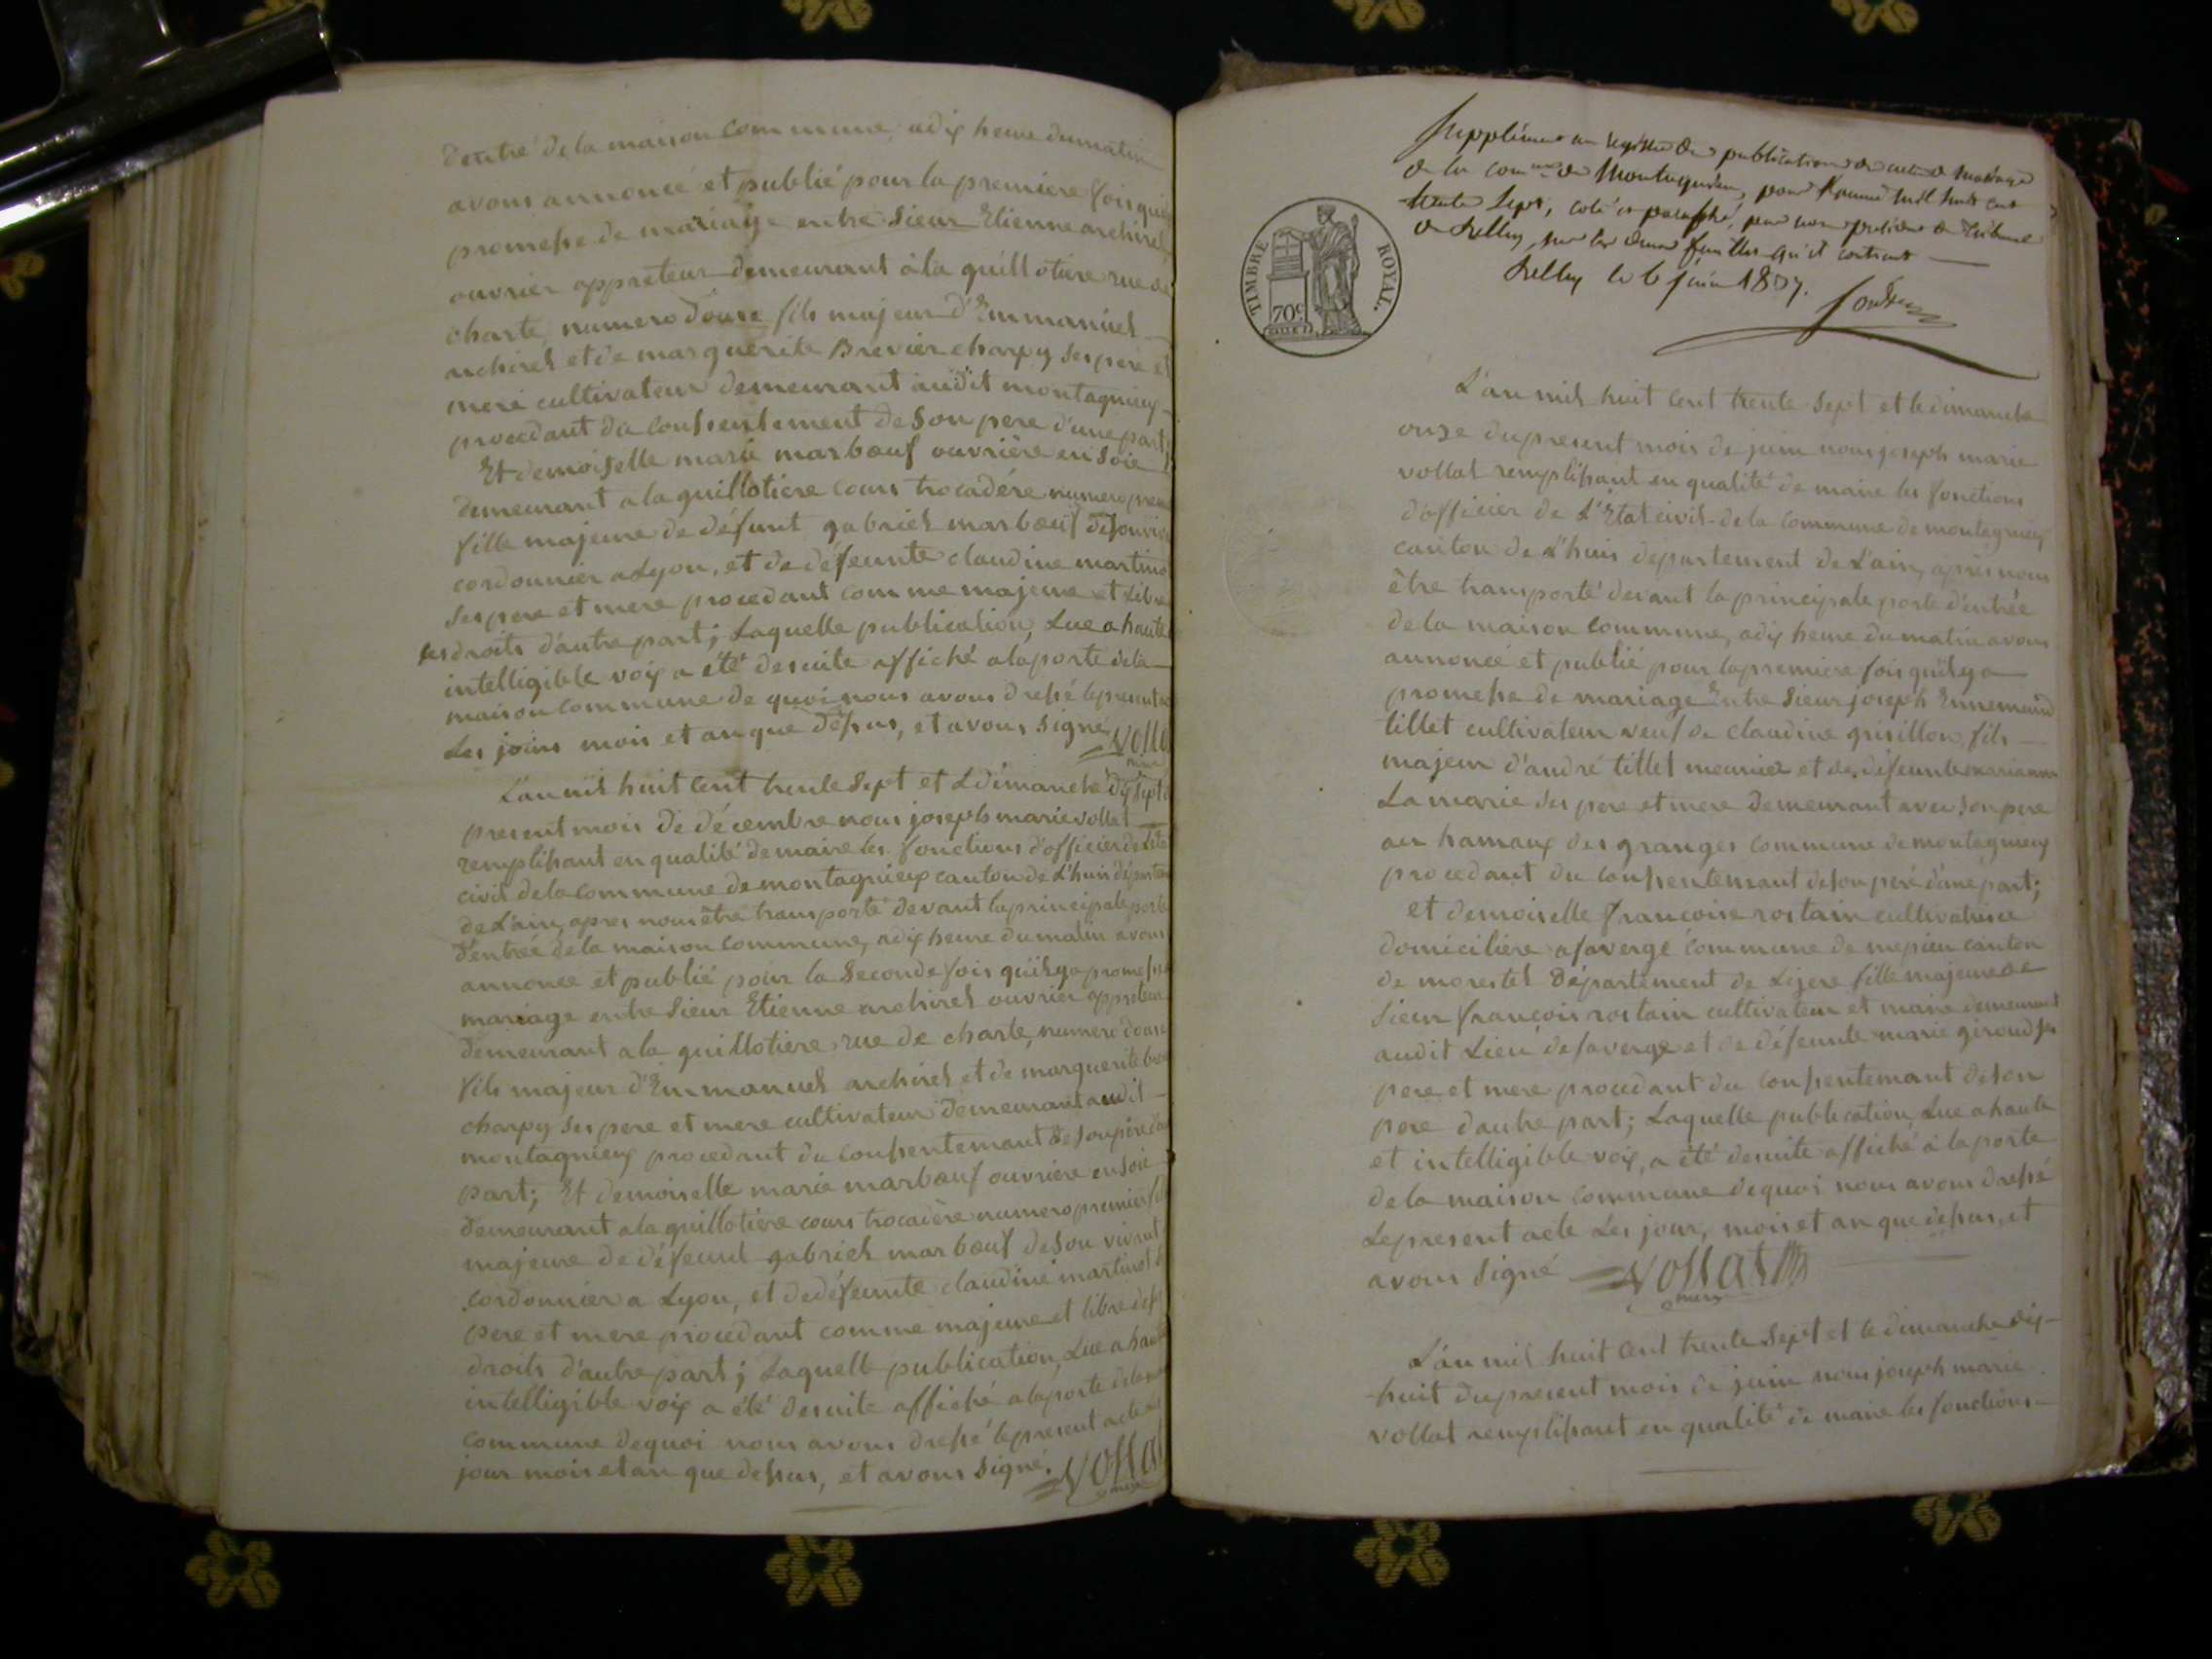 d'entré de la maison commune, adix heure dumatin
avons annoncé et publié pour la premiere fois quil
promesse de mariage entre Sieur Etienne archirel
ouvrier appreteur demeurant à la guillotiere rue de
charte, numero douse fils majeur d'Emmanuel
archirel et de marguerite Brevier charpy ses pere et
mere cultivateur demeurant audit montagnieu
procedant du consentement de son pere d'une part
Et demoiselle marie marbœuf ouvrière en soie
demeurant a la guillotiere cours trocadère numero prem
fille majeure de défunt gabriel marbœuf desonviv
cordonnier a Lyon, et de défeunte claudine martin
ses pere et mere procedant comme majeure et Libre
ses droits d'autre part; Laquelle publication, Lue a haute
intelligible voix a été desuite affiché a la porte dela
maison commune de quoi nous avons dressé lepresent
Les jours mois et an que dessus, et avons signé Volla
L'an mil huit cent trente sept et L dimanche dix sept d
present mois de décembre nous joseph marie vollat
remplissant en qualité demaire les fonctions d'officier de L'éta
civil dela commune de montagnieu canton de L'huis départem
de L'ain, apres nous être transporté devant la principale porte
d'entrée de la maison commune, adix heure du matin avons
annoncé et publié pour la seconde fois quilya promesse
mariage entre Sieur Etienne archirel ouvrier appreteur
demeurant a la guillotiere rue de charte, numero douse
fils majeur d'Emmanuel archirel et de marguerite brev
charpy ses pere et mere cultivateur demeurant audit
montagnieux procedant du consentemant de sonpère d'u
part; Et demoiselle marie marbœuf ouvriere ensoie
demeurant a la guillotiere cours trocadère numero premier fil
majeure de défeunt gabriel marbœuf deson vivant
cordonnier a Lyon, et dedéfeunte claudine martinet s
pere et mere procedant comme majeure et libre des
droits d'autre part; Laquelle publication, Lue a haute
intelligible voix a été desuite affiché a laporte dela
commune dequoi nous avons dressé lepresent acte
jour mois et an que dessus, et avons signé. Volla
Supplément au registre des publications des actes de Mariage
de la comune de Montagnieu, pour l'année mil huit cent
trente Sept, coté et paraphé, par nous président du tribunal
de Belley, sur les deux feuilles qu'il contient
Belley le 6 juin 1837.
TIMBRE ROYAL.
70c
L'an mil huit cent trente sept et ledimanche
onze dupresent mois de juin nous joseph marie
vollat remplissant en qualité de maire les fonctions
d'officier de L'Etat civil de la commune de montagnieu
canton de L'huis département de L'ain, apres nous
être transporté devant la principale porte d'entrée
de la maison commune, adix heure du matin avons
annoncé et publié pour lapremiere fois quilya
promesse de mariage Entre Sieur joseph Ennemond
tillet cultivateur veuf de claudine grisillon, fils
majeur d'andré tillet meunier et de défeunte marianne
Lamarie ses pere et mere demeurant avec son pere
au hamaux des granges commune de montagnieux
procedant du consentemant deson pere d'une part;
et demoiselle françoise rostain cultivatrice
domiciliere a faverge commune de mepieu canton
de morestel Département de Lizere fille majeure de
Sieur françois rostain cultivateur et maire demeurant
audit Lieu defaverge et de défeunte marie giroud ses
pere et mere procedant du consentemant deson
pere d'autre part; Laquelle publication, Lue a haute
et intelligible voix, a été desuite affiché à la porte
de la maison commune dequoi nous avons dressé
Lepresent acte Les jour, mois et an que dessus, et
avons signé Vollat
L'an mil huit cent trente Sept et le dimanche dix-
-huit dupresent mois de juin nous joseph marie
vollat remplissant en qualité de maire les fonctions